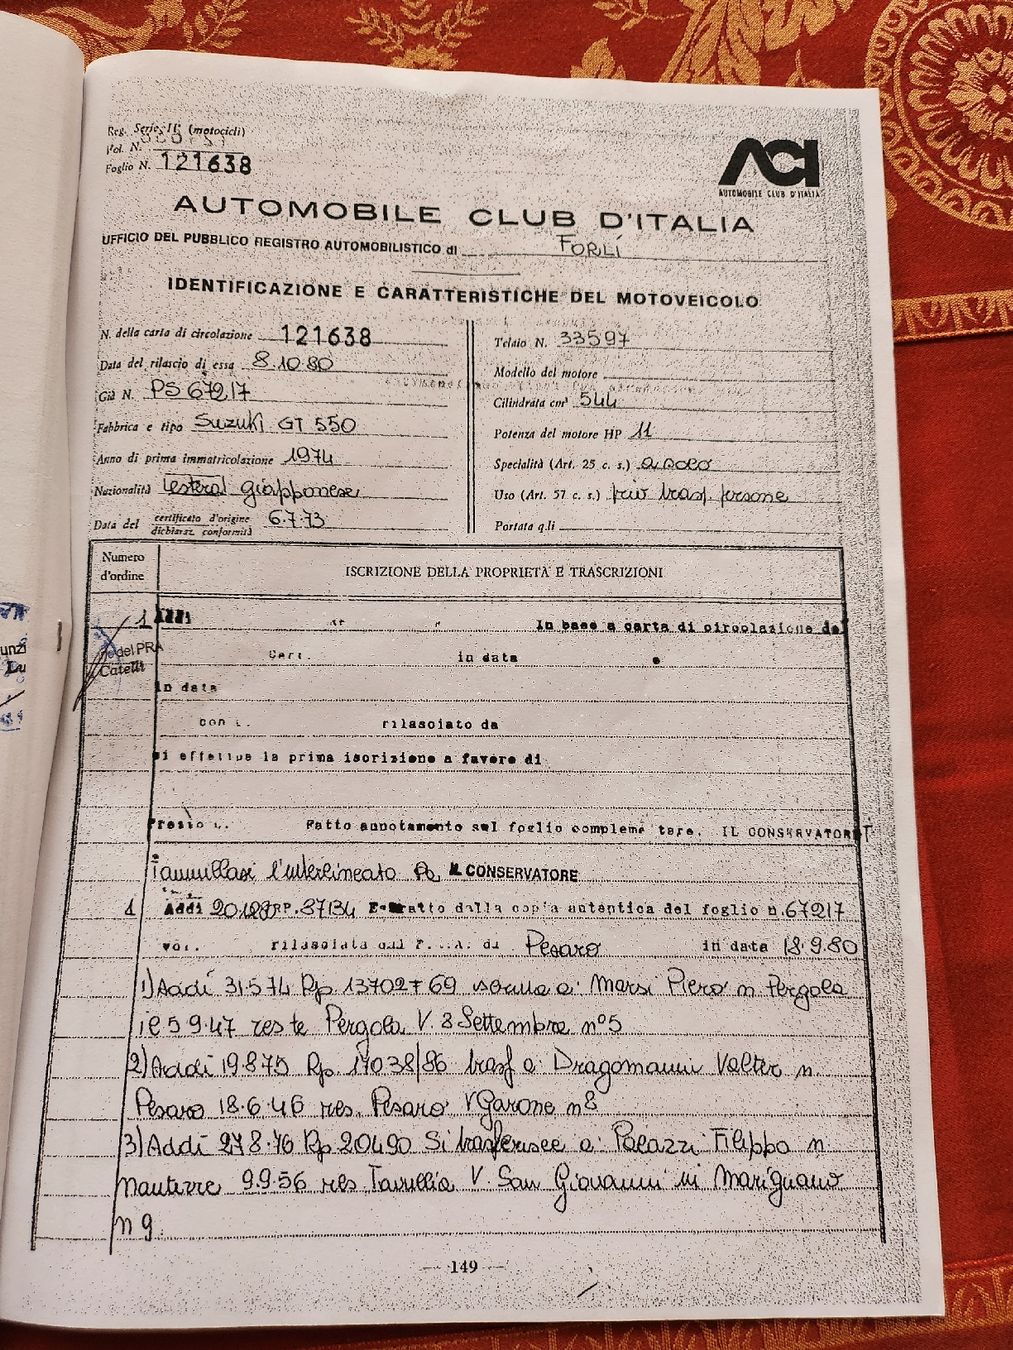 Reg. Serie II (motocicli)
Vol. N.
Foglio N. 121638
ACI
AUTOMOBILE CLUB D'ITALIA
AUTOMOBILE CLUB D'ITALIA
UFFICIO DEL PUBBLICO REGISTRO AUTOMOBILISTICO di FORLÌ
IDENTIFICAZIONE E CARATTERISTICHE DEL MOTOVEICOLO
N. della carta di circolazione 121638
Data del rilascio di essa 8.10.80
Già N. PS 67217
Fabbrica e tipo Suzuki GT 550
Anno di prima immatricolazione 1974
Nazionalità giapponese
Data del certificato d'origine 6.7.73
dichiaraz. conformità
Telaio N. 33597
Modello del motore
Cilindrata cm³ 544
Potenza del motore HP 11
Specialità (Art. 25 c. s.)
Uso (Art. 57 c. s.) priv trasp persone
Portata q.li
Numero d'ordine
ISCRIZIONE DELLA PROPRIETÀ E TRASCRIZIONI
1 Addì In base a carta di circolazione del
in data
in data
con rilasciato da
si effettua la prima iscrizione a favore di
Presso Fatto annotamento sul foglio complementare. IL CONSERVATORE
l'interlineato IL CONSERVATORE
1 Addì Estratto dalla copia autentica del foglio n. 67217
vol. rilasciata dal P.R.A. di Pesaro in data 18.9.80
1) Addì 31574 Rp 13702 + 69 a Marsi Piero n Pergola
il 5.9.47 res te Pergola V. 8 Settembre n° 5
2) Addì 19.8.75 Rp. 17038/86 trasf a Dragomanni Valter n.
Pesaro 18.6.46 res. Pesaro V Garone n 8
3) Addì 27.8.76 Rp 20490 Si trasferisce a Palazzi Filippo n
Nanterre 9.9.56 res Tavullia V. San Giovanni in Marignano
n 9.
149